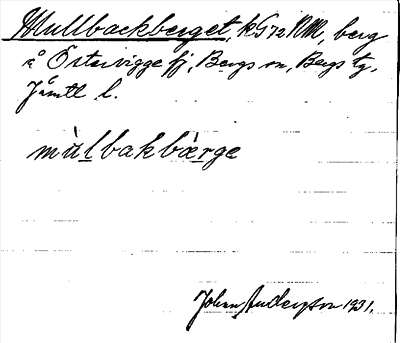 Mullbackberget, kG72NM, berg
å Östervigge fj, Bergs sn, Bergs tg,
Jämtl l.
mùlbakbæ̀rge
Johan Anderson 1931.